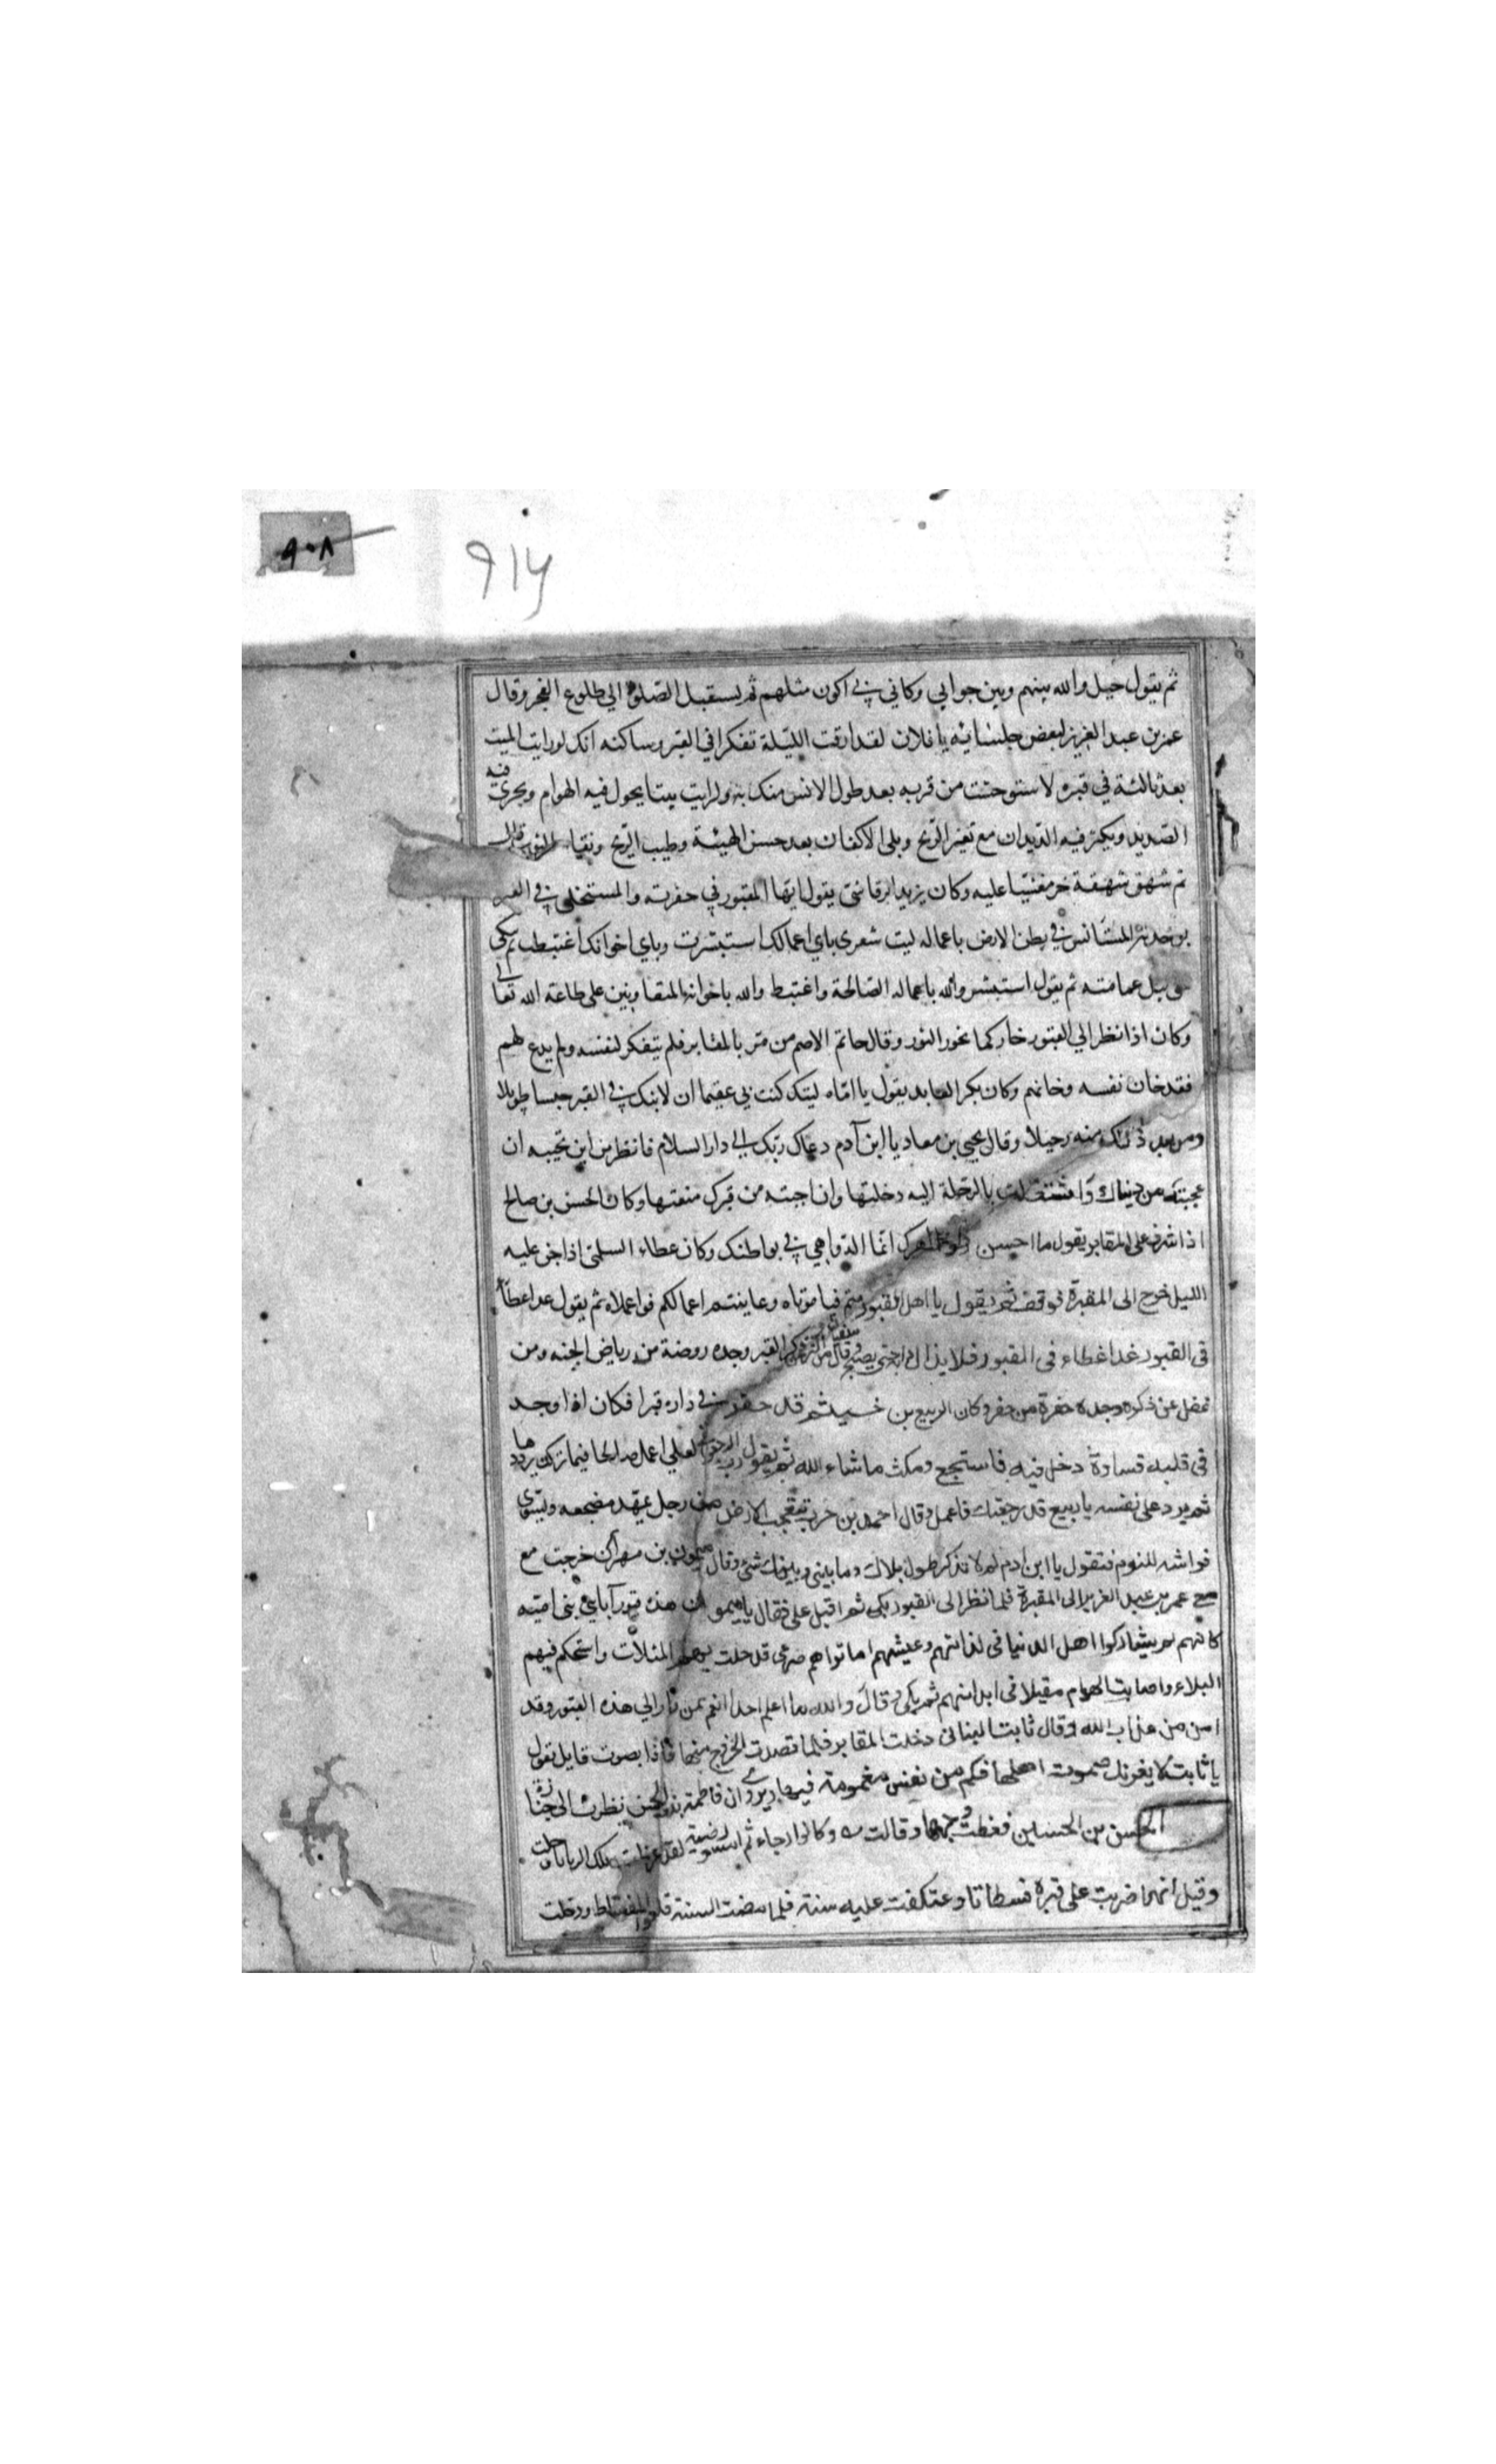 ٩٠٨
٩١٦
ثم يقول حيل والله بينهم وبين جوابي وكاني بي اكون مثلهم ثم يستقبل الصلوة الي طلوع الفجر وقال
عمر بن عبد العزيز لبعض جلسائه يا فلان لقد ارقت الليلة تفكرا في القبر وساكنه انك لو رايت الميت
بعد ثالثة في قبره لاستوحشت من قربه بعد طول الانس منك به ولرايت بيتا يجول فيه الهوام ويجري فيه
الصديد ويكثر فيه الديدان مع تغير الريح وبلى الاكفان بعد حسن الهيئة وطيب الريح ونقاء الثوب قال
ثم شهق شهقة خر مغشيا عليه وكان يزيد الرقاشي يقول ايها المقبور في حفرته والمستخلى في القبر
بوحدته المستانس في بطن الارض باعماله ليت شعري باي اعمالك استبشرت وباي اخوانك اغتبطت ثم يبكي
حتى يبل عمامته ثم يقول استبشر والله باعماله الصالحة واغتبط والله باخوانه المتعاونين على طاعة الله تعالى
وكان اذا نظر الي القبور خار كما يخور الثور وقال حاتم الاصم من مر بالمقابر فلم يتفكر لنفسه ولم يدع لهم
فقد خان نفسه وخانهم وكان بكر العابد يقول يا اماه ليتك كنت بي عقيما ان لابنك في القبر حبسا طويلا
ومن بعد ذلك منه رحيلا وقال يحيى بن معاد يا ابن آدم دعاك ربك الي دار السلام فانظر من اين تجيبه ان
عجبته من دنياك واشتغلت بالرحلة اليه دخلتها وان اجبته من قبرك منعتها وكان الحسن بن صالح
اذا اشرف على المقابر يقول ما احسن انما الدواهي في بواطنك وكان عطاء السلمي اذا جن عليه
الليل خرج الى المقبرة فوقف ثم يقول يا اهل القبور متم فيا موتاه وعاينتم اعمالكم فواعملاه ثم يقول غدا عطاء
في القبور غدا غطاء في المقبور فلا يزال حتى يصبح وقال سفيان من اكثر ذكر القبر وجده روضة من رياض الجنه ومن
غفل عن ذكره وجده حفرة من حفر وكان الربيع بن خسيثم قد حفر في داره قبرا فكان اذا وجد
في قلبه قساوة دخل فيه فاستجع ومكث ماشاء الله ثم يقول رب ارجعون لعلي اعمل صالحا فيما تركت يرددها
ثم يرد على نفسه يا ربيع قد رجعتك فاعمل وقال احمد بن حرب تتعجب الارض من رجل يمهد مضجعه ويسوى
فراشه للنوم فتقول يا ابن ادم لم لا تذكر طول بلاك وما بيني وبينك شئ وقال ميمون بن مهران خرجت مع
مع عمر بن عبد العزيز الى المقبرة فلما نظر الى القبور بكى ثم اقبل على فقال يا ميمون هذه قبور آبائي بنى امية
كانهم لم يشاركوا اهل الدنيا فى لذاتهم وعيشهم اما تراهم صرعى قد حلت بهم المثلات واستحكم فيهم
البلاء واصابت الهوام مقيلا فى ابدانهم ثم بكى وقال والله ما اعلم احدا انعم ممن صار الي هذه القبور وقد
امن من عذاب الله وقال ثابت البنانى دخلت المقابر فلما قصدت الخروج منها فاذا بصوت قايل يقول
يا ثابت لا يغرنك صموت اهلها فكم من نفس مغمومة فيها ويروى ان فاطمة بنت الحسن نظرت الى جنازة
الحسن بن الحسين فغطت وجهها وقالت وكانوا رجاء ثم امسوا رضية لقد عظمت تلك الرزايا وجلت
وقيل انها ضربت على قبره فسطاتا وعتكفت عليه سنة فلما مضت السنة قلعوا الفسطاط ودخلت